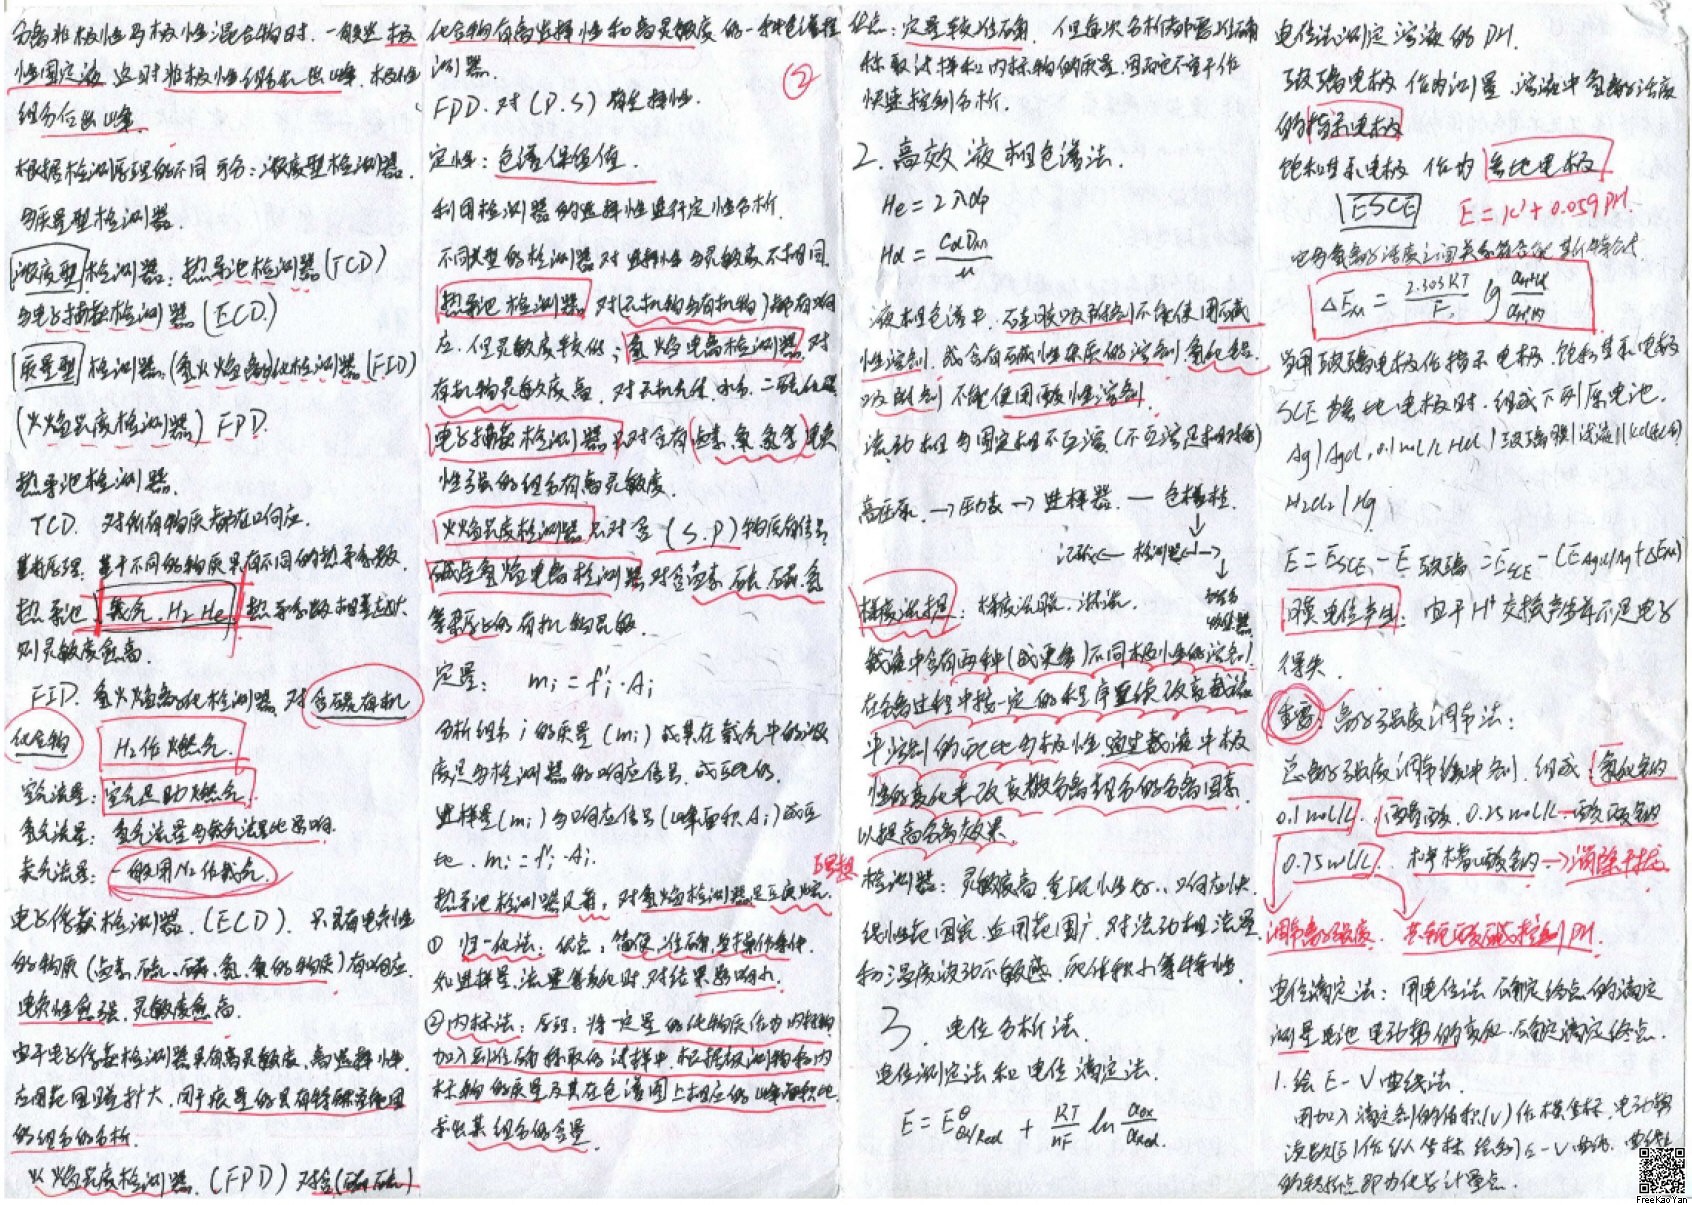 分离非极性与极性混合物时.一般选极
性固定液 这时非极性组分先出峰.极性
组分后出峰.
根据检测原理的不同可分:浓度型检测器.
与质量型检测器.
浓度型检测器:热导池检测器(TCD)
与电子捕获检测器(ECD.)
质量型检测器:(氢火焰离子化检测器(FID)
(火焰光度检测器) FPD.
热导池检测器.
TCD. 对所有物质都有响应.
基本原理:基于不同的物质具有不同的热导系数.
热导池 载气.H2 He 热导系数相差越大
则灵敏度愈高.
FID. 氢火焰离子化检测器 对含碳有机
化合物 H2作燃气.
空气流量:空气是助燃气.
氢气流量:氢气流量与载气流量比影响.
载气流量:一般用N2作载气.
电子俘获检测器.(ECD). 只具有电负性
的物质(卤素.硫.磷.氮.氧的物质)有响应.
电负性愈强.灵敏度愈高.
由于电子俘获检测器具有高灵敏度.高选择性.
应用范围日益扩大.用于痕量的具有特殊官能团
的组分的分析.
火焰光度检测器.(FPD) 对含(磷.硫)
化合物有高选择性和高灵敏度的一种色谱检
测器. ②
FPD.对(P.S)有选择性.
定性:色谱保留值.
利用检测器的选择性进行定性分析.
不同类型的检测器对选择性与灵敏度不相同.
热导池检测器 对(无机物与有机物)都有响
应.但灵敏度较低;氢焰电离检测器.对
有机物灵敏度高.对无机气体.水分.二硫化碳
电子捕获检测器只对含有(卤素.氧.氮等)电负
性强的组分有高灵敏度.
火焰光度检测器 只对含(S.P)物质有信号
碱盐氢焰电离检测器 对含卤素.硫.磷.氮
等杂原子的有机物灵敏.
定量: mi = fi'·Ai
分析组分i的质量(mi)或其在载气中的浓
度是与检测器的响应信号.成正比的.
进样量(mi)与响应信号(峰面积Ai)成正
比. mi = fi'·Ai.
热导池检测器是苯,对氢焰检测器是正庚烷.
① 归一化法:优点:简便.准确.当操作条件.
如进样量.流量等变化时.对结果影响小.
②内标法:原理:将一定量的纯物质作为内标物
加入到准确称取的试样中.根据被测物和内
标物的质量及其在色谱图上相应的峰面积比
求出某组分的含量.
优点:定量较准确.但每次分析都需准确
称取试样和内标物的质量.因而它不宜于作
快速控制分析.
2. 高效液相色谱法.
He = 2λdp
Hd = CdDm/u
液相色谱中.不宜吸附剂不能使用碱
性溶剂.或含有碱性杂质的溶剂.氧化铝
吸附剂不能使用酸性溶剂.
流动相与固定相不互溶(不互溶是相对的)
高压泵.→压力表→进样器 — 色谱柱.
↓
记录← 检测器→
↓
馏分
收集器
梯度洗提:梯度洗脱.淋洗.
载液中含有两种(或更多)不同极性的溶剂.
在分离过程中按一定的程序连续改变载液
中溶剂的配比与极性.通过载液中极
性的变化来改变被分离组分的分离因素.
以提高分离效果.
检测器:灵敏度高.重现性好..响应快.
线性范围宽.应用范围广.对流动相流量
和温度波动不敏感.死体积小等特性.
3. 电位分析法.
电位测定法和电位滴定法.
E = E^θ Ox/Red + RT/nF ln aOx/aRed.
电位法测定溶液的PH.
玻璃电极作为测量溶液中氢离子活度
的指示电极
饱和甘汞电极 作为参比电极
[ESCE] E = K' + 0.059PH.
ΔEM = 2.303RT/F lg aH+试/aH+内
当用玻璃电极作指示电极.饱和甘汞电极
SCE为参比电极时.组成下列原电池.
Ag|AgCl,0.1mol/L HCl|玻璃膜|试液||KCl(饱和)
Hg2Cl2|Hg
E = ESCE - E玻璃 = ESCE - (EAgCl/Ag + ΔEM)
膜电位产生:由于H+交换产生并不是电子
得失.
重要:离子强度调节法:
总离子强度调节缓冲剂.组成:氯化钠
0.1mol/L.醋酸.0.25mol/L.醋酸钠
0.75mol/L.柠檬酸钠→消除干扰.
调节离子强度.
控制PH.
电位滴定法:用电位法确定终点的滴定
测量电池电动势的变化.确定滴定终点.
1.绘E-V曲线法.
用加入滴定剂的体积(V)作横坐标.电动势
读数(E)作纵坐标绘制E-V曲线.曲线上
的转折点即为化学计量点.
FreeKaoYan